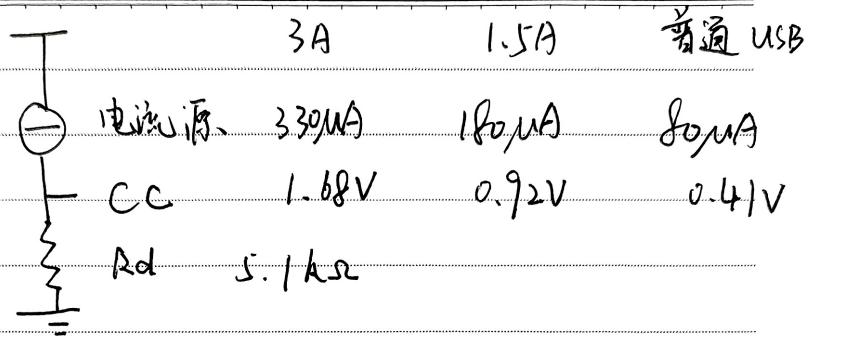 3A 1.5A 普通 USB
电流源、 330μA 180μA 80μA
CC 1.68V 0.92V 0.41V
Rd 5.1kΩ